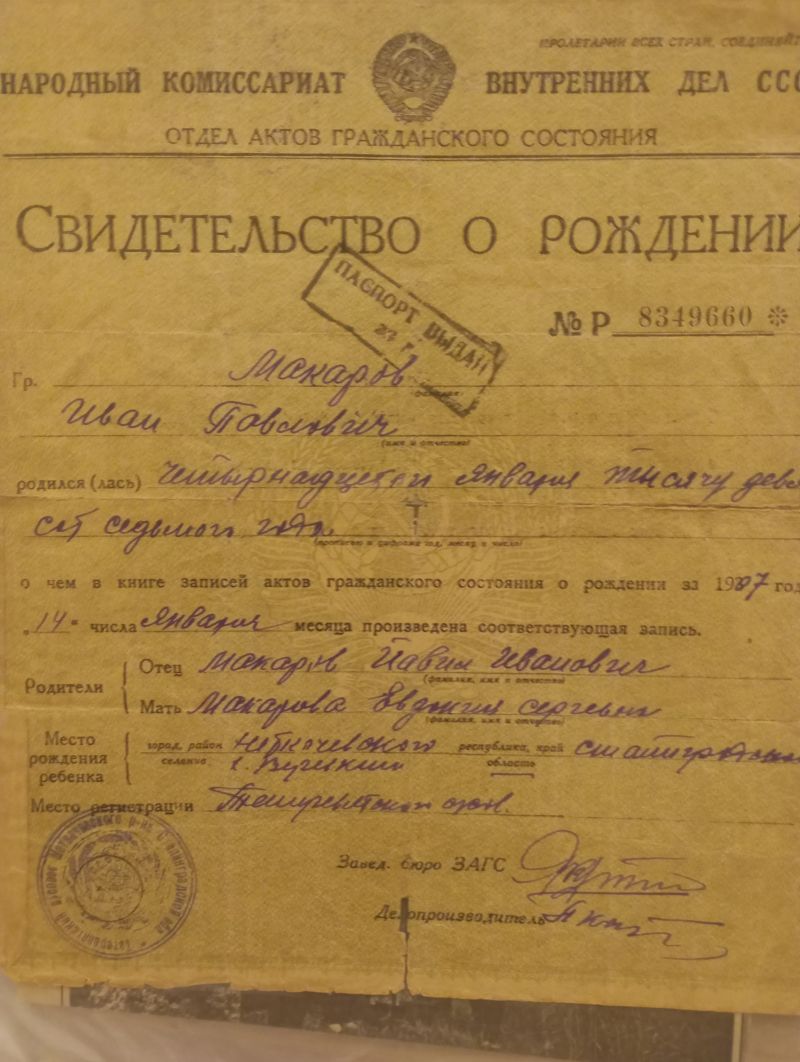 ПРОЛЕТАРИИ ВСЕХ СТРАН, СОЕДИНЯЙТ
НАРОДНЫЙ КОМИССАРИАТ ВНУТРЕННИХ ДЕЛ ССС
ОТДЕЛ АКТОВ ГРАЖДАНСКОГО СОСТОЯНИЯ
СВИДЕТЕЛЬСТВО О РОЖДЕНИИ
ПАСПОРТ ВЫДАН
27 г.
№ Р 8349660
Гр. Макаров
Иван Павлович
(имя и отчество)
родился (лась) четырнадцатого января тысячу девя
сот седьмого года
(прописью и цифрами год, месяц и число)
о чем в книге записей актов гражданского состояния о рождении за 1907 год
„14“ числа января месяца произведена соответствующая запись.
Родители
Отец Макаров Павил Иванович
(фамилия, имя и отчество)
Мать Макарова Евдокия Сергевна
(фамилия, имя и отчество)
Место рождения ребенка
город, район селение
республика, край область
Место регистрации
Завед. бюро ЗАГС
Делопроизводитель